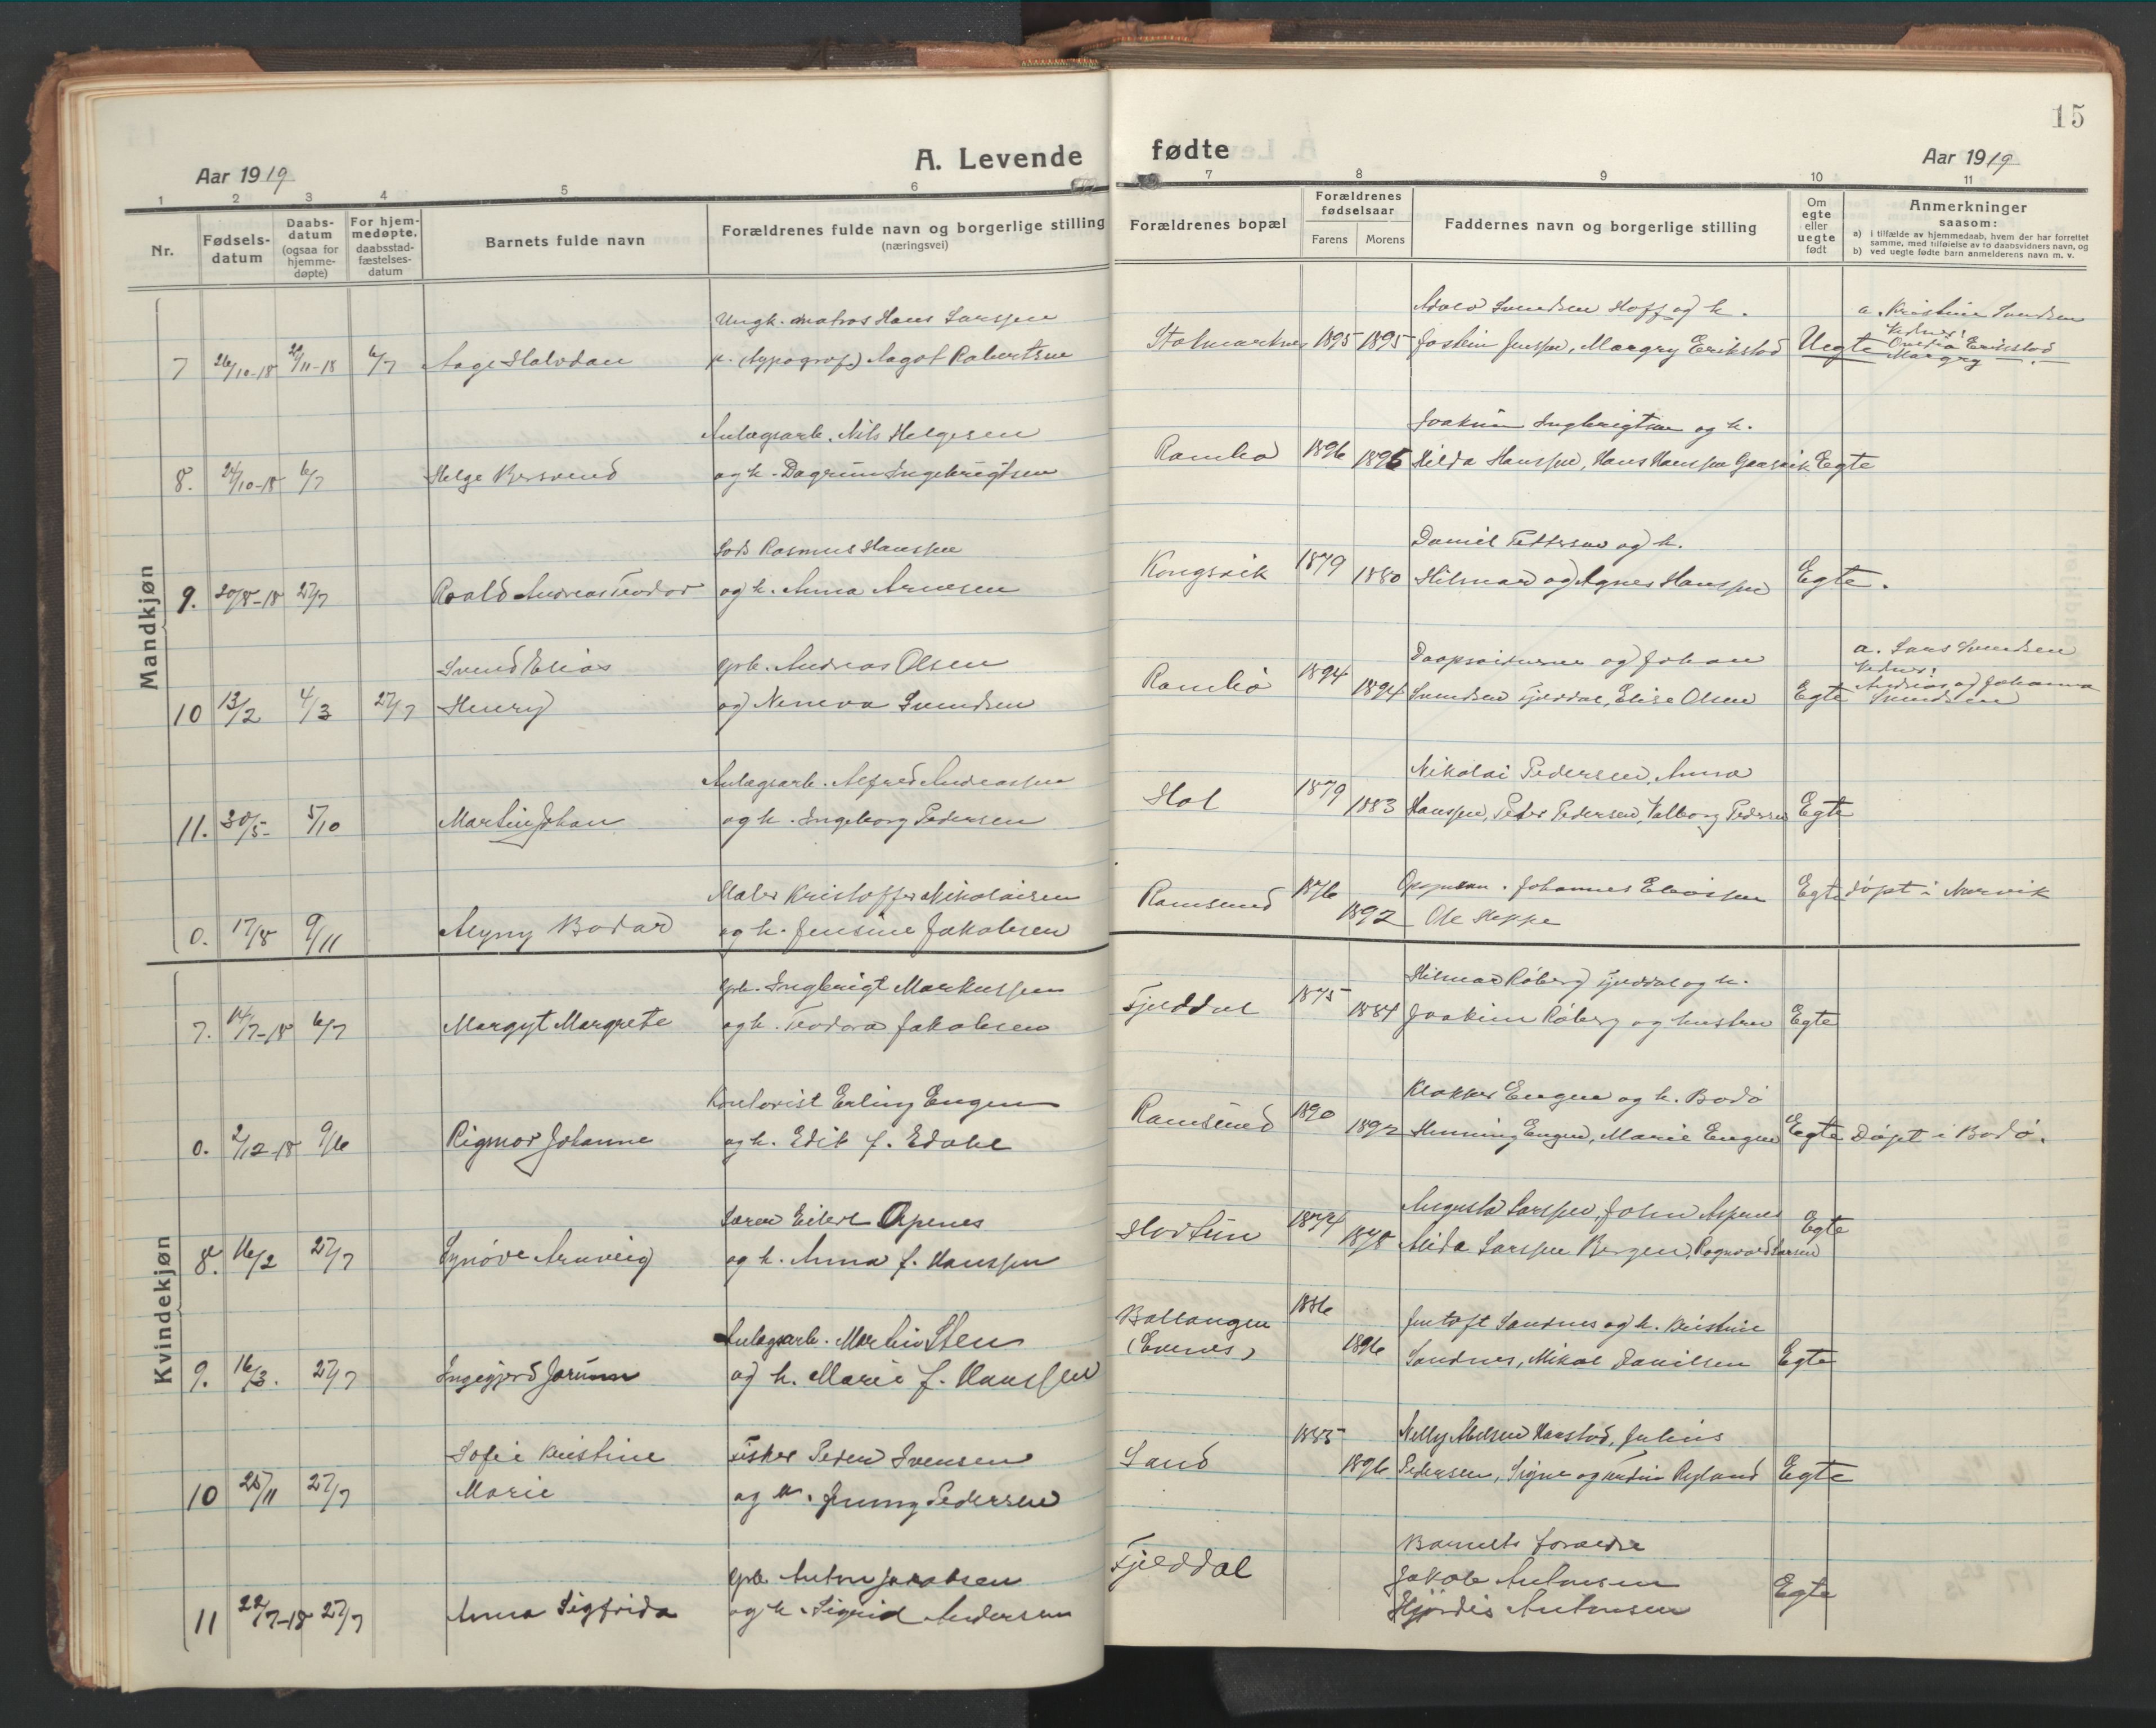 15
Aar 1919
A. Levende
fødte
Aar 1919
1 2 3 4 5 6 7 8 9 10 11
Nr.
Fødsels-
datum
Daabs-
datum
(ogsaa for
hjemme-
døpte)
For hjem-
medøpte.
daabsstad-
fæstelses-
datum
Barnets fulde navn
Forældrenes fulde navn og borgerlige stilling
(næringsvei)
Forældrenes bopæl
Forældrenes
fødselsaar
Farens Morens
Faddernes navn og borgerlige stilling
Om
egte
eller
uegte
født
Anmerkninger
saasom:
a) i tilfælde av hjemmedaab, hvem der har forrettet
samme, med tilføielse av to daabsvidners navn, og
b) ved uegte fødte barn anmelderens navn m. v.
Mandkjøn
Ungk. matros Hans Larssen
7 26/10-18 6/7 Aage Halvdan
p. (typograf) Aagot Robertsen
1895 1895
Svendsen Hoff og h.
Jenssen, Margry Erikstad
Uegte
a. Kristine Svendsen
Vidner:
Erikstad
Margry
Anlægsarb. Nils Helgesen
8. 24/10-18 6/7 Helge
og h. Dagrun Ingebrigtsen
Rambø 1896 1896
Joakim Ingbrigtsen og h.
Hilda Hanssen, Hans Hanssen
Egte
Rasmus Hanssen
9. 20/8-18 27/7 Roald Andreas Teodor
og h. Anna Arnesen
Kongsvik 1879 1880
Daniel Pettersen og h.
Hilmar og Agnes Hanssen
Egte.
Svend Elias
Henry
10 13/2 4/3 27/7
grb. Andreas Olsen
og Neneva Svendsen
Rambø 1894 1894
og Johan
Svendsen Fjelddal, Elise Olsen
Egte
a. Lars Svendsen
Vidner:
Andreas og Johanna
Svendsen
Anlægsarb. Alfred Andreassen
11. 30/5 5/10 Martin Johan
og h. Ingeborg Pedersen
Hol 1879 1883
Nikolai Pedersen, Anna
Hanssen, Peder Pedersen, Valborg Pedersen
Egte
Maler Kristoffer Nikolaisen
0. 17/8 9/11 Bodar
og h. Jensine Jakobsen
Ramsund 1876 1892
Johannes Eliassen
Ole Steppe
Egte døpt i Narvik
Kvindekjøn
grb. Ingbrigt Markussen
7. 14/7-18 6/7 Margyt Margrete
og h. Teodora Jakobsen
Fjelddal 1875 1884
Hilmar Røberg Fjelddal og h.
Joakim Røberg og hustru
Egte
Kontorist Erling Engen
0. 2/12-18 9/6 Rigmor Johanne
og h. Edit f. Edahl
Ramsund 1890 1892
Klokker Engen og h. Bodø
Henning Engen, Marie Engen
Egte Døpt i Bodø.
Lærer Eilert Aspenes
8. 16/2 27/7 Synøve Arnveig
og h. Anna f. Hanssen
1874 1878
Augusta Larssen, John Aspenes
Alida Larssen Bergen, Ragnvald Larsen
Egte
Anlægsarb. Martin Sten
9. 16/3. 27/7 Ingegjerd Jorunn
og h. Marie f. Hanssen
Ballangen
(Evenes)
1886 1896
Jentoft Sandnes og h. Kristine
Sandnes, Mikal Danilsen
Egte
Sofie Kristine
Marie
10 25/11 27/7
Fisker Peder Svensen
og h. Jenny Pedersen
Sand 1885 1896
Nelly Abelsen Harstad, Julius
Pedersen, Signe og Ryland
Egte
grb. Anton Jakobsen
11 22/7-18 27/7 Anna Sigfrida
og h. Sigrid Andersen
Fjelddal
Barnets forældre
Jakob Antonsen
Hjørdis Antonsen
Egte